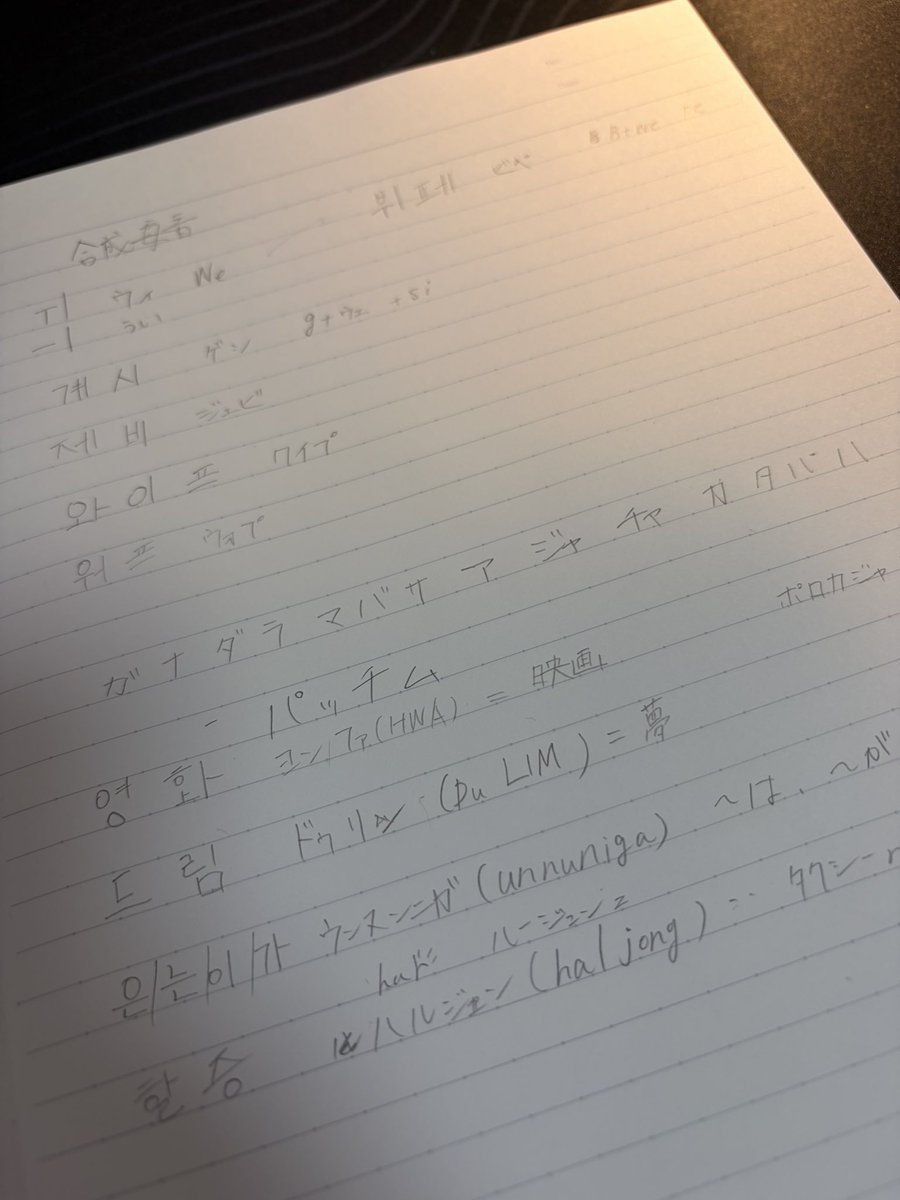 합성母音
뷔페 ビペ B+we
ㅟ ウィ We
ㅢ うい
개시 ゲシ g+ウェ +si
제비 ジェビ
와이프 ワイプ
워프 ウォプ
ガ ナ ダ ラ マ バ サ ア ジャ チャ カ タ パ ハ
- パッチム ポロカジャ
영화 ヨンファ(HWA) = 映画
드림 ドゥリム (Du LIM) = 夢
은/는/이/가 ウンヌンニガ (unnuniga) ~は、~が
ハルジョン (haljong) タクシー